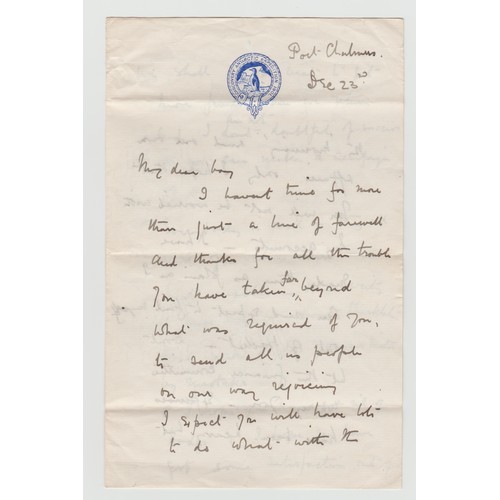 Port Chalmers.
Dec 23rd
My dear boy
I havent time for more
than just a line of farewell
and thanks for all the trouble
you have taken far beyond
what was required of you,
to send all us people
on our way rejoicing
I expect you will have lots
to do what with the